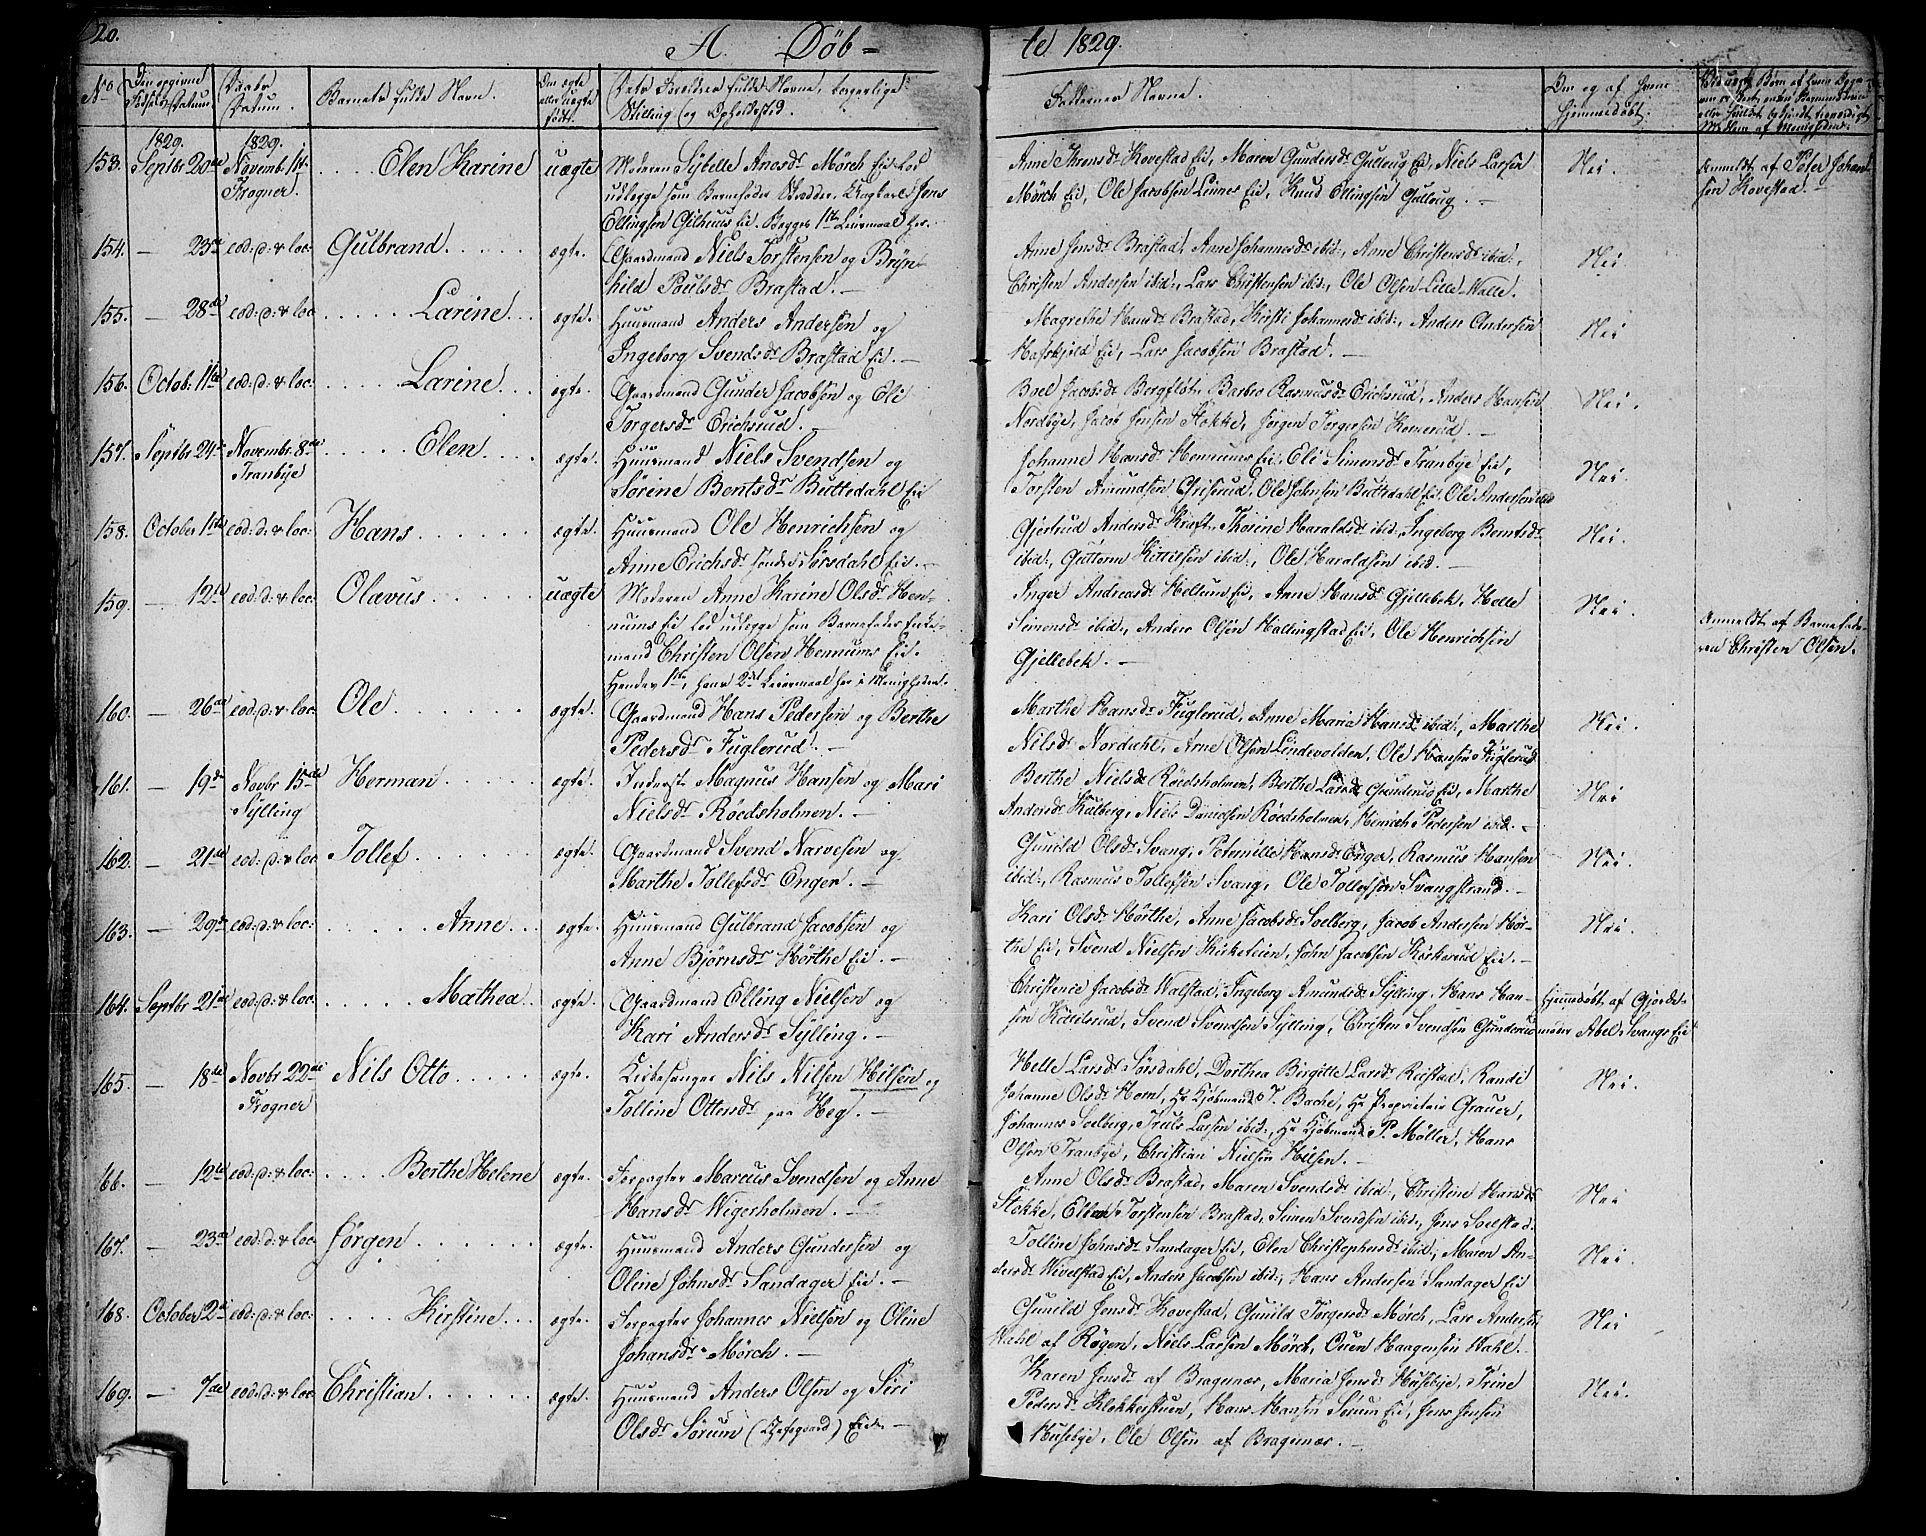 20.
A. Døb-
te 1829.
No
Barnets fulde Navn.
Faddernes Navne.
1829. 1829.
153. Septbr 20de Novemb. 1ste Frogner. Elen Karine uægte Moderen Sibelle Anesdr Mörch Eie Lod
udlægge som Barnefader Ungkarl Jens
Ellingsen Gilhuus Eie. Begges 1ste Leiermaal her.
Anne Jensdr Kovestad Eie, Maren Gundersdr Gulleug Eie, Niels Larsen
Mörch Eie, Ole Jacobsen Linnes Eie, Knud Ellingsen Gulleug. —
Nei.
Anmeldt af Peter Johan-
sen Kovestad. —
154. — 23de eod: d: & loc: Gulbrand ægte. Gaardmand Niels Torstensen og Bryn-
hild Poulsdr Brastad. —
Anne Jensdr Brastad, Anne Johannesdr ibid:, Anne Christensdr ibid:,
Christen Andersen ibid:, Lars Christensen ibid:, Ole Olsen Lille-Walle.
Nei.
155. — 28de eod: d: & loc: Larine ægte. Huusmand Anders Andersen og
Ingeborg Svendsdr Brastad Eie. —
Magrethe Hansdr Brastad, Kirsti Johannesdr ibid:, Anders Andersen
Haskjold Eie, Lars Jacobsen Brastad. —
Nei
156. Octob. 11te eod: d: & loc: Larine ægte. Gaardmand Gunder Jacobsen og Eli
Torgersdr Ericksrud. —
Boel Jacobsdr Bergfløt, Barbro Rasmusdr Ericksrud, Anders Hansen
Nordbye, Jacob Jensen Stokke, Jörgen Torgersen Komerud. —
Nei.
157. Septbr 24de Novembr. 8de Tranbye Elen ægte. Huusmand Niels Svendsen og
Sørine Bentsdr Buttedahl Eie
Johanne Hansdr Hennums Eie, Eli Simensdr Tranbye Eie,
Torsten Amundsen Griserud, Ole Johnsen Buttedahl Eie, Ole Andersen ibid
Nei.
158. October 1ste eod: d: & loc: Hans ægte. Huusmand Ole Henrichsen og
Anne Erichsdr søndre Sørsdahl Eie. —
Gjertrud Andersdr Kraft, Thorine Haraldsdr ibid:, Ingeborg Berntsdr
ibid:, Guttorm Kittilsen ibid:, Ole Haraldsen ibid. —
Nei.
159. — 12te eod: d: & loc: Olavus uægte Moderen Anne Karine Olsdr Hen-
nums Eie lod udlægge som Barnefader Enke-
mand Christen Olsen Hennums Eie.
Hendes 1ste, hans 2det Leiermaal her i Menigheden.
Inger Andreasdr Hellum Eie, Anne Hansdr Gjellebek, Helle
Simensdr ibid:, Anders Olsen Hallingstad Eie, Ole Henrichsen
Gjellebek. —
Nei.
Anmeldt af Barnefade-
ren Christen Olsen.
160. — 26de eod: d: & loc: Ole ægte. Gaardmand Hans Pedersen og Berthe
Pedersdr Fuglerud. —
Marthe Hansdr Fuglerud, Anne Maria Hansdr ibid:, Marthe
Nilsdr Nordahl, Arne Olsen Lindevolden, Ole Hansen Fuglerud
Nei.
161. — 19de Novbr 15de Sylling Herman ægte. Inderste Magnus Hansen og Mari
Nielsdr Röedsholmen. —
Berthe Nielsdr Röedsholmen, Berthe Larsdr Gunderud Eie, Marthe
Andersdr Kulberg, Niels Danielsen Röedsholmen, Hinrich Pedersen ibid. —
Nei
162. — 21de eod: d: & loc: Tollef ægte. Gaardmand Svend Narvesen og
Marthe Tollefsdr Enger. —
Gunild Olsdr Svang, Peternille Hansdr Enger, Rasmus Hansen
ibid:, Rasmus Tollefsen Svang, Ole Tollefsen Svangstrand. —
Nei.
163. — 29de eod: d: & loc: Anne ægte. Huusmand Gulbrand Jacobsen og
Anne Bjørnsdr Hörthe Eie. —
Kari Olsdr Hörthe, Anne Jacobsdr Soelberg, Jacob Andersen Hør-
the Eie, Svend Nielsen Kirketeien, John Jacobsen Köskerud Eie. —
Nei.
164. Septbr 21de eod: d: & loc: Mathea ægte. Gaardmand Elling Nielsen og
Kari Andersdr Sylling. —
Christence Jacobsdr Walstad, Ingeborg Amundsdr Sylling, Hans Han-
sen Kittilsrud, Svend Svendsen Sylling, Christen Svendsen Gunderud
Hjemmedøbt af Gjorde-
moder Abel Svangs Eie
165. — 18de Novbr 22de Frogner Nils Otto ægte. Kirkesanger Nils Nilsen Hilsen og
Tolline Ottersdr paa Heg. —
Helle Larsdr Sørsdahl, Dorthea Birgitte Larsdr Reistad, Randi
Johanne Olsdr Horn, Hr Kjøbmand T. Bache, Hr Proprietair Grauer,
Johannes Soelberg, Truls Larsen ibid:, Hr Kjøbmand P. Møller, Hans
Olsen Tranbye, Christian Nielsen Hilsen. —
Nei.
166. — 12te eod: d: & loc: Berthe Helene ægte. Forpagter Marcus Svendsen og Anne
Hansdr Wigerholmen. —
Anne Olsdr Brastad, Maren Svendsdr ibid:, Christine Hansdr
Stokke, Ellen Torstensen Brastad, Simen Svendsen ibid:, Jens Soelstad.
Nei
167. — 23de eod: d: & loc: Jørgen ægte. Huusmand Anders Gundersen og
Oline Johnsdr Sandager Eie. —
Tolline Johnsdr Sandager Eie, Elen Christophersdr ibid:, Maren An-
dersdr Wivelstad Eie, Anders Jacobsen ibid:, Hans Andersen Sandager Eie
Nei.
168. October 2de eod: d: & loc: Kirstine ægte. Forpagter Johannes Nielsen og Oline
Johansdr Mörch. —
Gunild Jensdr Kovestad, Gunild Torgersdr Mörch, Lars Andersen
Wahl af Røgen, Niels Larsen Mörch, Ouen Haagensen Wahl. —
Nei
169. — 7de eod: d: & loc: Christian ægte. Huusmand Anders Olsen og Siri
Olsdr Sørum (Kjøsgaard) Eie. —
Karen Jensdr af Bragenæs, Maria Jensdr Husebye, Trine
Pedersdr Klokkerstuen, Hans Hansen Sørum Eie, Jens Jensen
Husebye, Ole Olsen af Bragenæs. —
Nei.